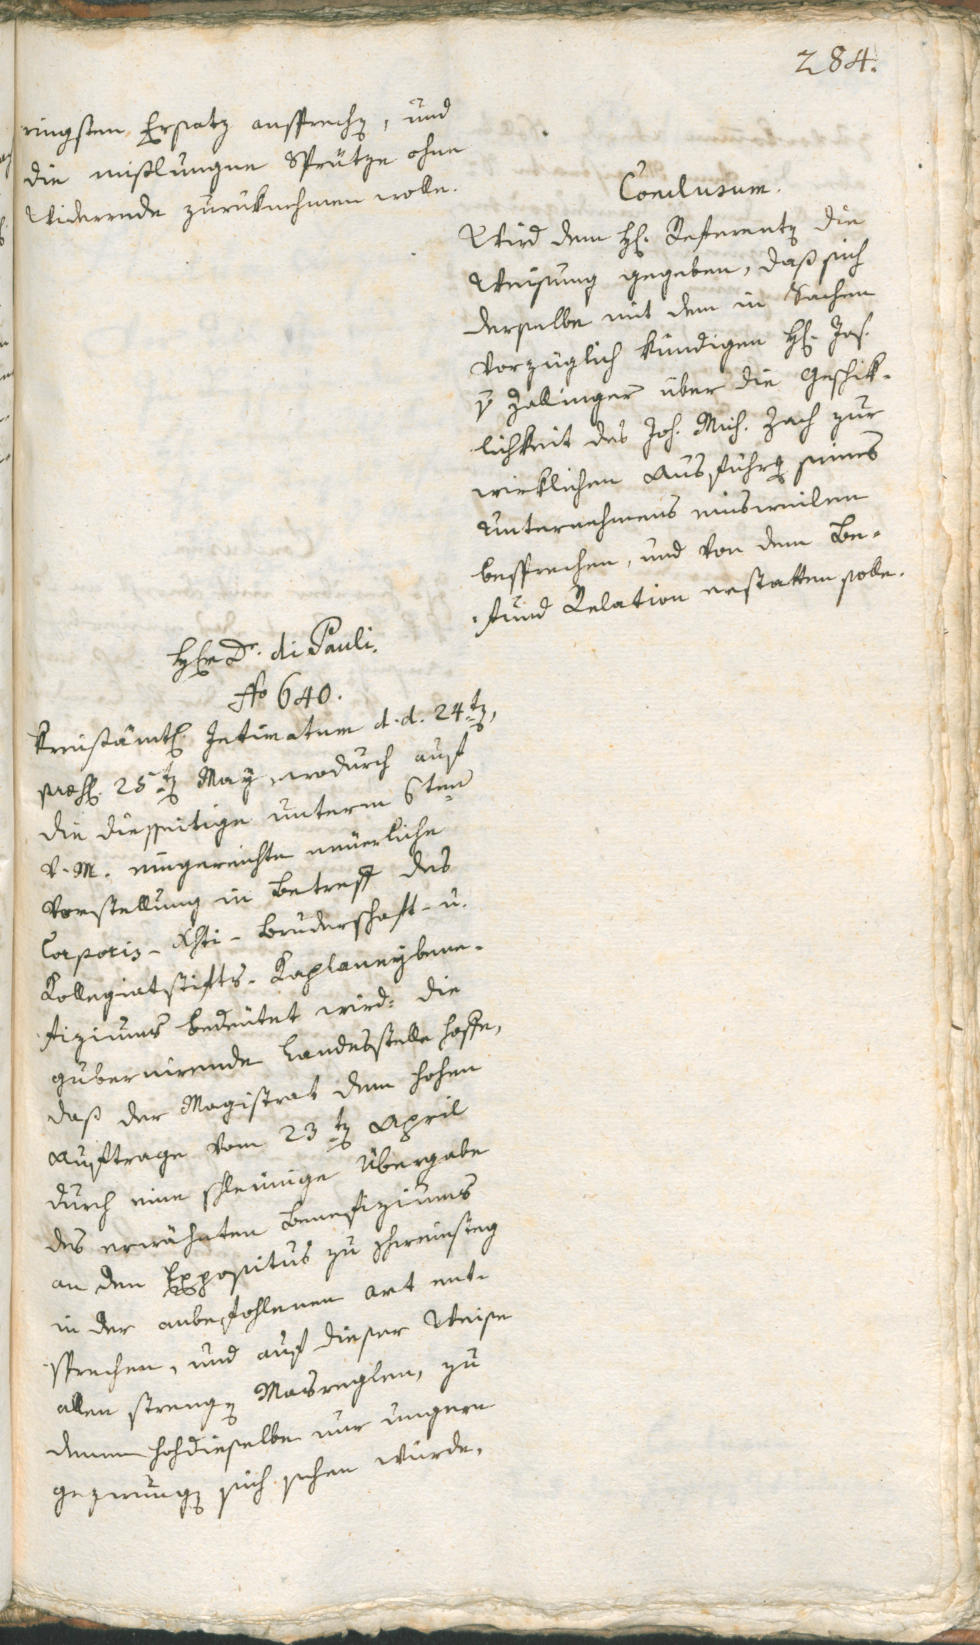 284.
ringsten Ersatz ansprechen, und
die mißlungne Sprütze ohne
Widerrede zurüknehmen wolle.
Conclusum.
Wird dem H. Referenten die
Weisung gegeben, daß sich
derselbe mit dem in Sachen
vorzüglich kündigen H. Jos.
v Zallinger über die Geschik-
lichkeit des Joh. Mich. Zach zur
wirklichen Ausführung seines
Unternehmens einsweilen
besprechen, und von dem Be-
fund Relation erstatten solle.
Herr Dr. di Pauli.
No 640.
Kreisämtl. Intimatum d. d. 24ten,
præs. 25ten May, wodurch auf
die diesseitige unterm 6ten
v. M. eingereichte neuerliche
Vorstellung in Betreff des
Corporis-Xsti-Bruderschaft- u.
Kollegiatstifts-Kaplaneybene-
fiziums bedeutet wird: die
gubernirende Landesstelle hoffe,
daß der Magistrat dem hohen
Auftrage vom 23ten April
durch eine schleunige Übergabe
des erwähnten Benefiziums
an den Expositus zu
in der anbefohlenen Art ent-
sprechen, und auf dieser Weise
allen strengen Masreglen, zu
denen hochdieselbe nur ungern
gezwungen sich sehen würde,